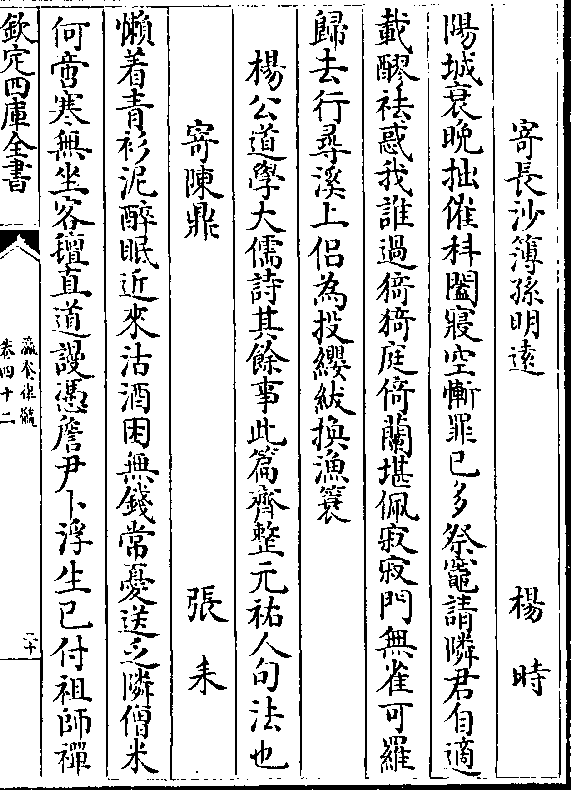 寄長沙簿孫明遠　　　楊　時
陽城衰晚拙催科闔寢空慚罪已多祭竈請隣君自適
載醪祛惑我誰過猗猗庭倚蘭堪佩寂寂門無雀可羅
歸去行尋溪上侣為投纓紱換漁簑
楊公道學大儒詩其餘事此篇齊整元祐人句法也
寄陳鼎　　　張　耒
懶着青衫泥醉眠近來沽酒困無錢常憂送乏隣僧米
何啻寒無坐客氊直道謾憑詹尹卜浮生已付祖師禪
欽定四庫全書
瀛奎律髓
卷四十二
二十